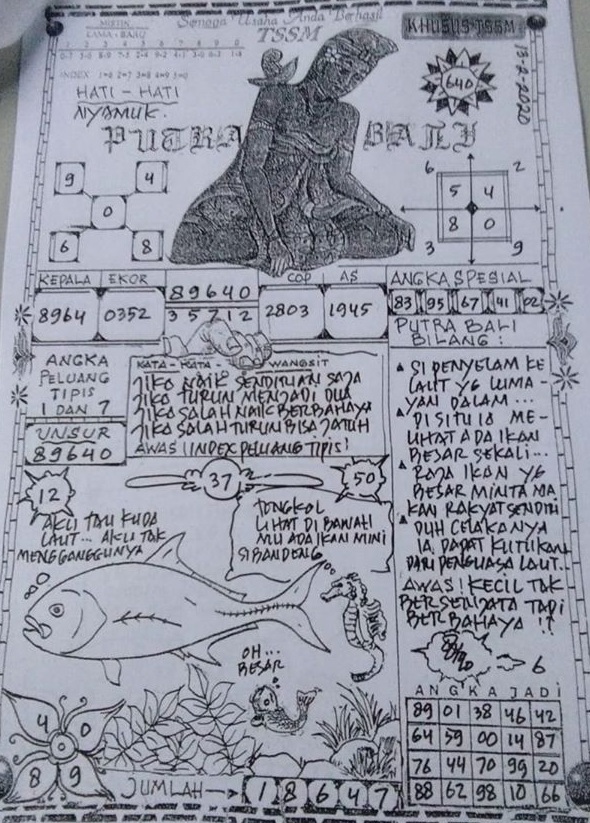 MISTIK
LAMA - BARU
Semoga Usaha Anda Berhasil
TSSM
KHUSUS TSSM
13-2-2020
640
INDEX 1=6 2=7 3=8 4=9 5=0
HATI - HATI
NYAMUK.
PUTRA BALI
9 4
0
6 8
6 2
5 4
8 0
3 9
KEPALA EKOR
8964 0352
89640
35712
COP AS
2803 1945
ANGKA SPESIAL
83 95 67 41 02
PUTRA BALI
BILANG :
ANGKA
PELUANG
TIPIS
1 DAN 7
UNSUR
89640
KATA - KATA - WANGSIT
JIKA NAIK SENDIRIAN SAJA
JIKA TURUN MENJADI DUA
JIKA SALAH NAIK BERBAHAYA
JIKA SALAH TURUN BISA JATUH
AWAS ! INDEX PELUANG TIPIS !
▲ SI PENYELAM KE
LAUT YG LUMA -
YAN DALAM ...
▲ DI SITU IA ME -
LIHAT ADA IKAN
BESAR SEKALI...
▲ RAJA IKAN YG
BESAR MINTA MA
KAN RAKYAT SENDIRI
▲ DUH CELAKANYA
IA DAPAT KUTUKAN
DARI PENGUASA LAUT...
AWAS ! KECIL TAK
BERSENJATA TAPI
BERBAHAYA !!
12
37
50
AKU TAU KUDA
LAUT... AKU TAK
MENGGANGGUNYA
TONGKOL
LIHAT DI BAWAH
MU ADA IKAN MINI
SI BANDENG
OH...
BESAR
6
4 0
8 9
JUMLAH → 1 8 6 4 7
ANGKA JADI
89 01 38 46 42
64 59 00 14 87
76 44 70 99 20
88 62 98 10 66